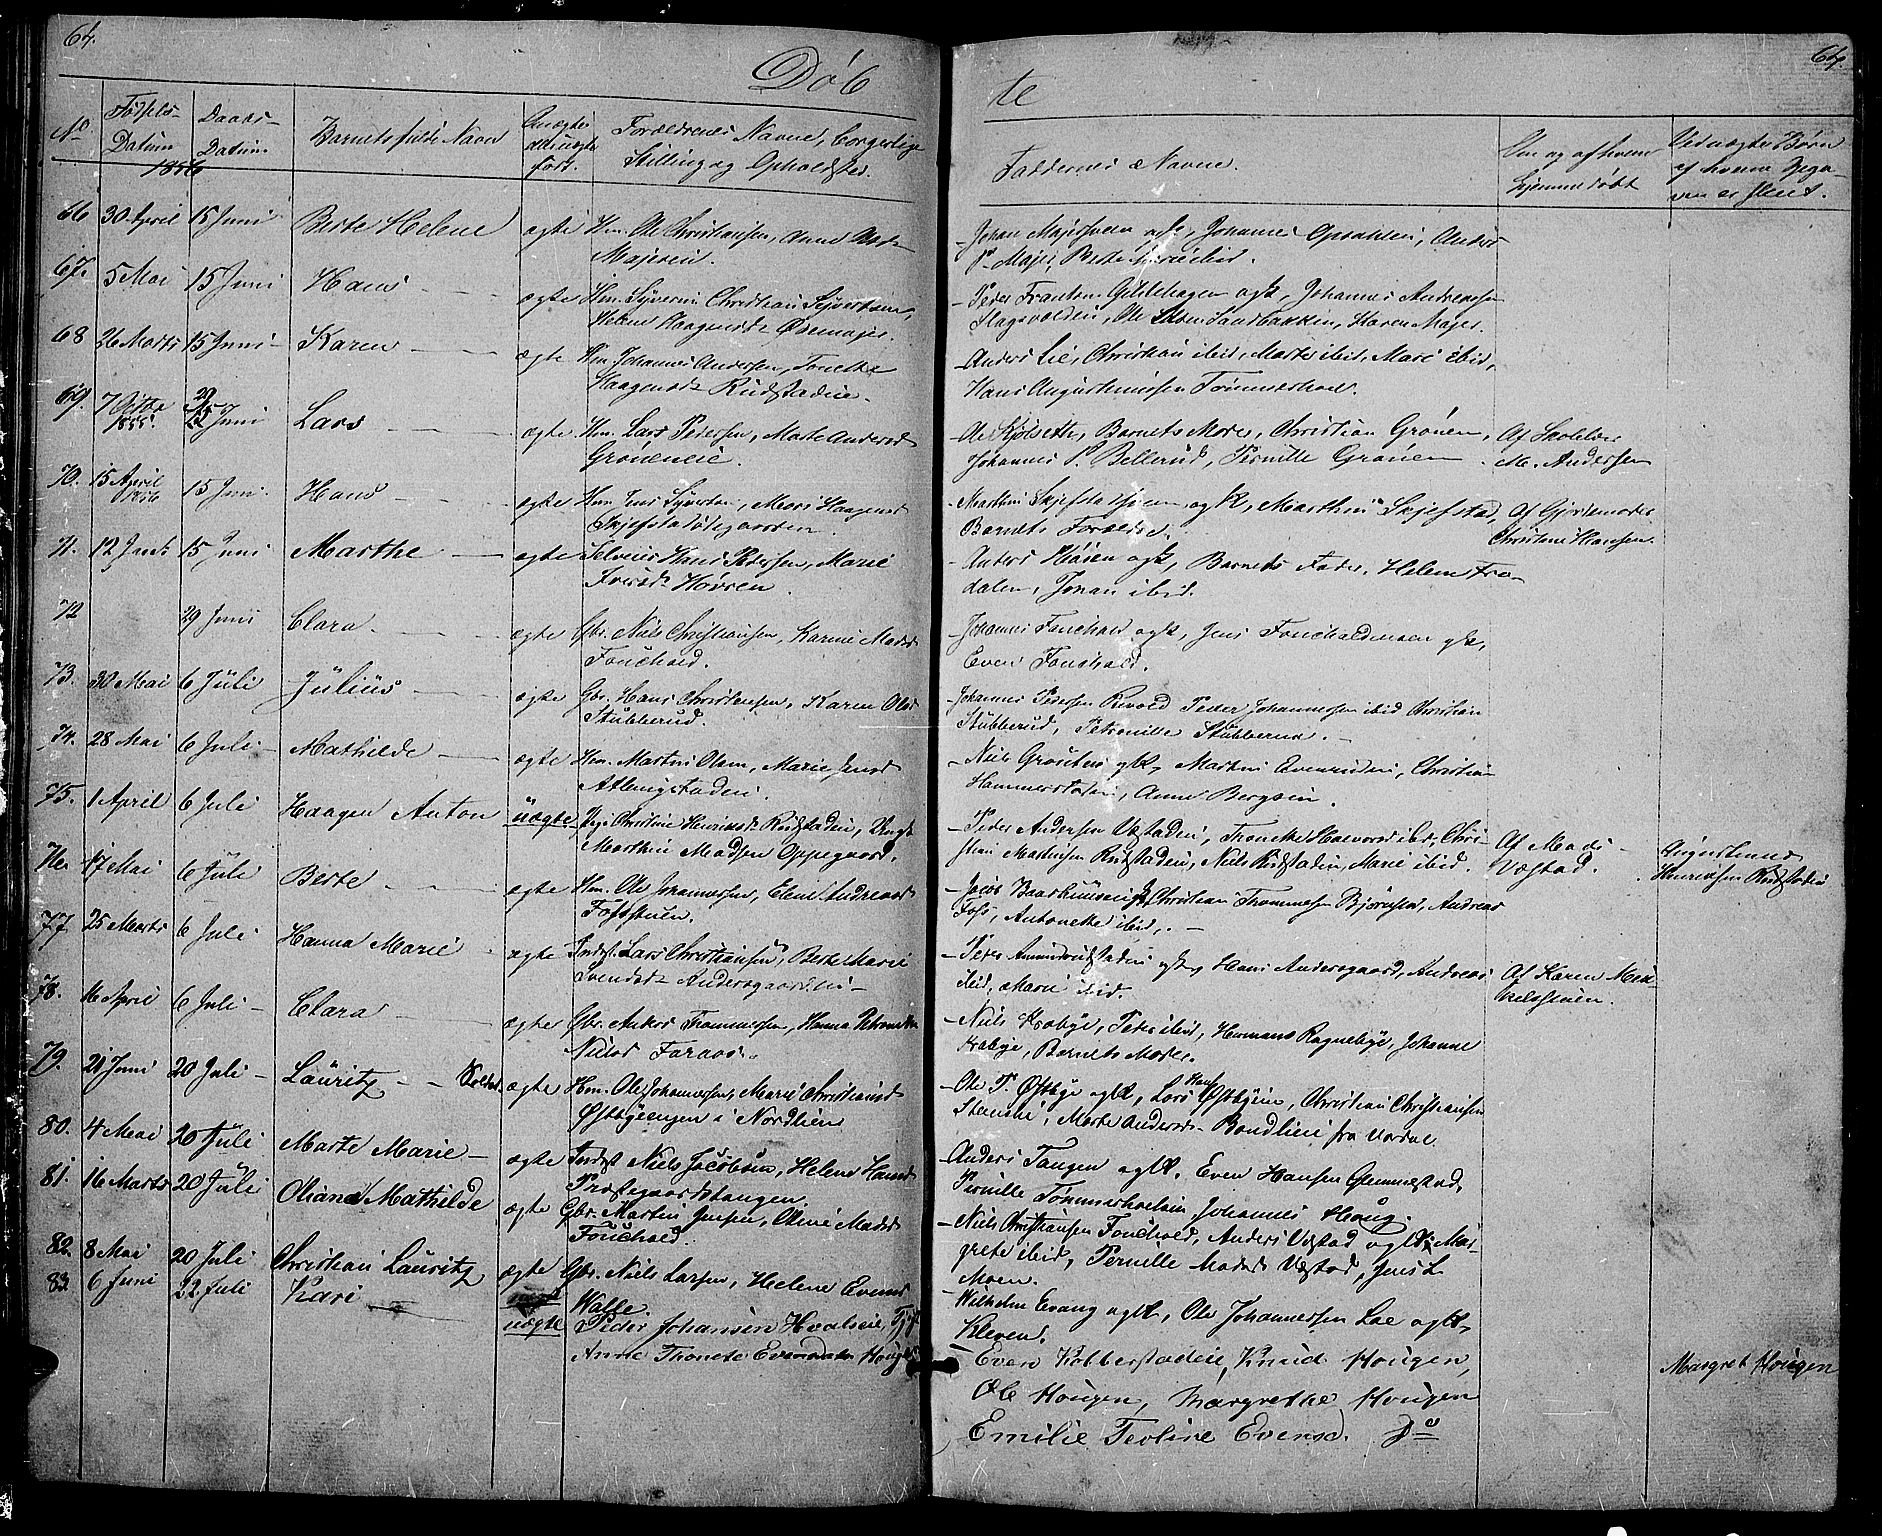 64.
64.
Døb
te
No
Fødsels-
Datum
Daabs-
Datum
Barnets fulde Navn
Ægte
uægte
født.
Forældrenes Navne, borgerlige
Stilling og Opholdsted.
Faddernes Navne.
Om og af hvem
hjemmedøbt
Ved uægte Børn
af hvem Opga-
ven er skeet.
1856
66 30 April 15 Juni Berte Helene ægte Hm. Ole Christiansen, Anne
Majereie.
Johan Majer, Johannes Opsahlen, Anders
Majer, Berte Marie ibid.
67. 5 Mai 15 Juni Hans ægte Hm. Syverin Christian Syvertsen,
Helene Haagensdr Østmajer.
Peder Frantsen Gildehagen ogk, Johannes Andreassen
Flagsvolden, Ole Olsen Sandbakken, Karen Majer.
68 26 Marts 15 Juni Karen ægte Hm Johannes Andersen, Tonette
Haagensdr Rudstadeie.
Anders Lie, Christian ibid, Marte ibid, Mari ibid,
Hans Augustinusen Tømmerhol.
69. 7 Octbr 1855. 29 Juni Lars ægte Hm. Lars Pedersen, Marte Andersd
Grøneneie.
Ole Kjølseth, Barnets Moder, Christian Grønen,
Johannes P. Bellerud, Pernille Grønen.
Af Skolelær
M. Andersen
70. 15 April 1856 15 Juni Hans ægte Hm Jens Syversen, Mari Haagensd
Skjefstadødegaarden.
Marthin Skjefstad ogk, Marthin Skjefstad,
Barnets Forældre.
Af Gjordemoder
Christine Hansen.
71. 12 Juni 15 Juni Marthe ægte Selveier Hans Pedersen, Marie
Iversdr Høvren.
Anders Høien ogk, Barnets Fader, Helene Fra-
dalen, Johan ibid.
72 29 Juni Clara ægte Gbr. Niels Christiansen, Karine Madsd
Fouchald.
Johannes Fouchald ogk, Jens Fouchald ogk,
Even Fouchald.
73. 30 Mai 6 Juli Julius ægte Gbr. Hans Christensen, Karen Olsd
Stubberud.
Johannes Pedersen Revold Peder Johannessen ibid Christian
Stubberud, Petronille Stubberud.
74. 28 Mai 6 Juli Mathilde ægte Hm. Martin Olsen, Marie Jensd
Atlungstadeie.
Niels Grønsten ogk, Martin Evenrudeie, Christian
Hammerstaden, Anne Bergseie.
75. 1 April 6 Juli Haagen Anton uægte Pige Christine Henriksdr Rudstadeie, Ungk
Marthin Madsen Oppegaard.
Peder Andersen Vestadeie, Tronette Halvorsd ibid, Chri-
stian Martinsen Rudstadeie, Niels Rudstadeie, Marie ibid.
Af Mads
Vægstad.
Augustinus
Henriksen Rudstadeie
76. 17 Mai 6 Juli Berte ægte Hm. Ole Johannessen, Elene Andreasd
Fossstuen.
Jacob Baarlunseie, Christian Thommesen Bjørnsrud, Andreas
Foss, Antonette ibid.
77 25 Marts 6 Juli Hanna Marie ægte Indst. Lars Christiansen, Berte Marie
Svendsdr Andersgaardeie
Peder Amundrudstadeie ogk, Hans Andersgaard, Andreas
ibid, Marie ibid.
Af Karen Mæh-
kelsstuen.
78. 16 April 6 Juli Clara ægte Gbr. Anders Frammersen, Hanna Petronelle
Nielsd Faraas.
Niels Krabye, Peder ibid, Hermans Ragnebye, Johanne
Krabye, Barnets Moder.
79. 21 Juni 20 Juli Lauritz ægte Hm. Ole Johannessen, Marie Christiansd
Østbyeengen i Nordlien
Ole P. Østbye ogk, Lars Hans Østbyeie, Christian Christiansen
Stenslie, Marte Andersdr Bondlien fra Vardal
80. 4 Mai 20 Juli Marte Marie ægte Indst Niels Jacobsen, Helene Hansd
Præstegaardstangen
Anders Tangen ogk, Even Hansen Glemmestad,
Pernille Tømmerholeie, Johannes Houg.
81. 16 Marts 20 Juli Oliana Mathilde ægte Gbr. Martin Jensen, Oline Madsd
Fouchald.
Niels Christiansen Fouchald, Anders Vestad ogk, Mar-
grete ibid, Pernille Madsd Vestad, Jens L
Moen.
82. 8 Mai 20 Juli Christian Lauritz ægte Gbr. Niels Larsen, Helene Evensd
Walle
Wilhelm Evang ogk, Ole Johannessen Loe ogk,
Kleven.
83. 6 Juni 22 Juli Kari uægte Peder Johansen Hvalseie, Pige
Anne Thonete Evensdatr Hougen
Even Kobberstadeie, Knud Hougen,
Ole Hougen, Margrethe Hougen
Emilie Teoline Evensd. Do
Margret Hougen